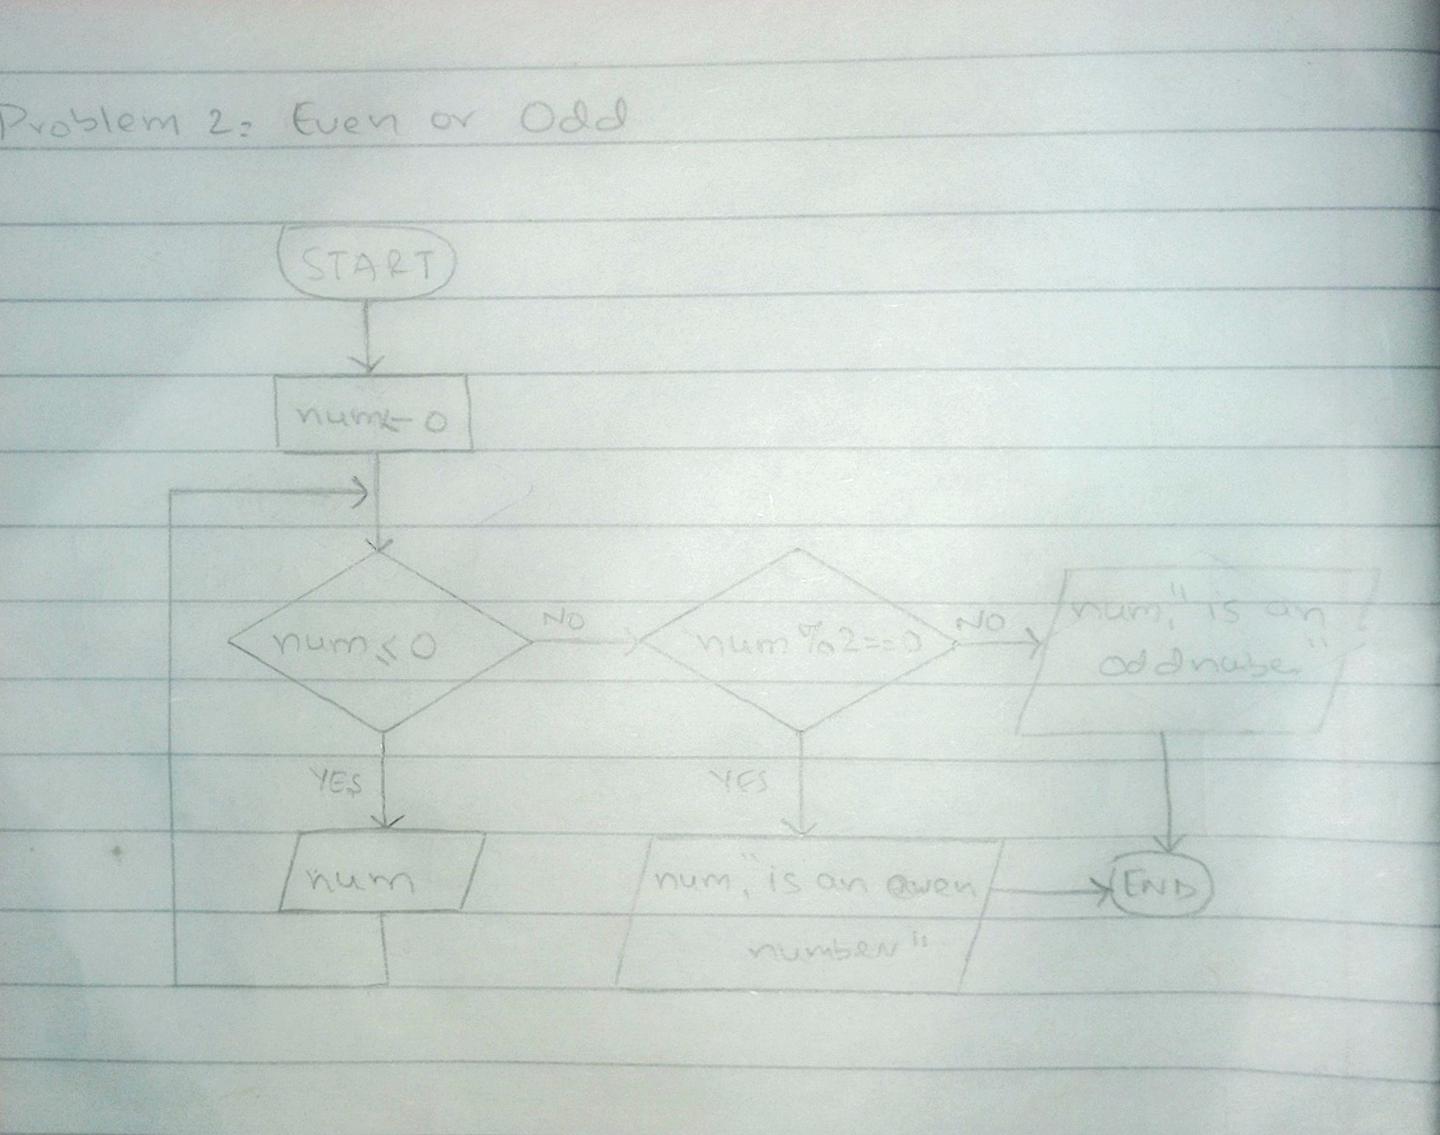 Problem 2: Even or Odd
START
num ← 0
num ≤ 0
NO
num % 2 == 0
NO
num, " is an
odd nube"
YES
YES
num
num, " is an even
number"
END